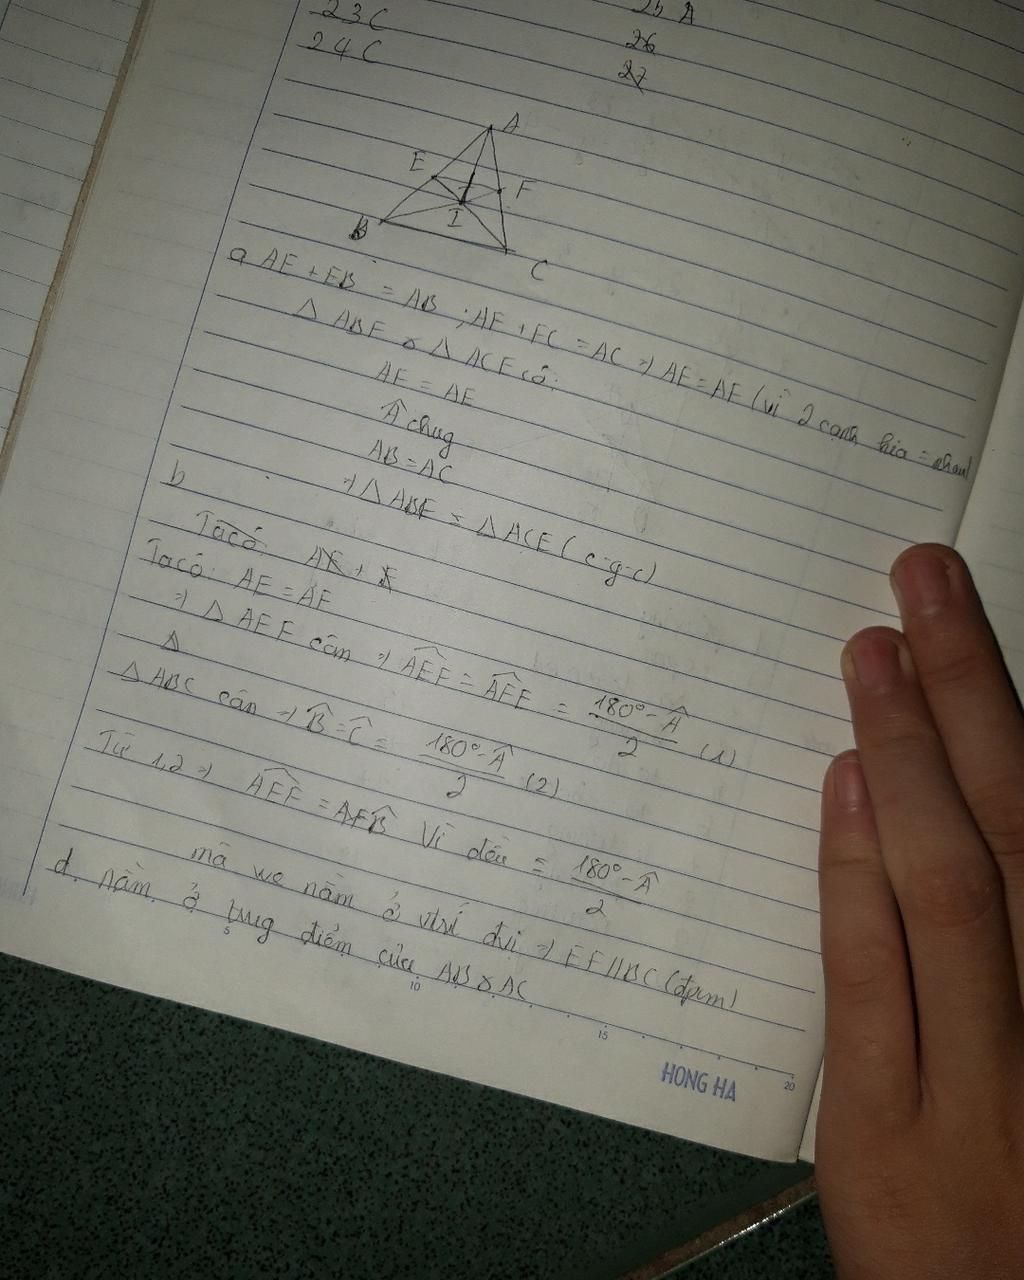 23C
24C
25 A
26
27
A
E
F
I
B
C
a AE + EB = AB ; AF + FC = AC => AE = AF (vì 2 cạnh kia = nhau)
Δ ABF & Δ ACE có:
AE = AF
Â chug
AB = AC
=> Δ ABF = Δ ACE (c-g-c)
b
Ta có:
Ta có: AE = AF
=> Δ AEF cân => AEF = AFE = 180° - Â / 2 (1)
Δ
Δ ABC cân => B̂ = Ĉ = 180° - Â / 2 (2)
Từ 1,2 => AEF = AFB Vì đều = 180° - Â / 2
mà we nằm ở vtrí đvị => EF // BC (đpcm)
d. nằm ở trug điểm của AB & AC
5
10
15
20
HONG HA